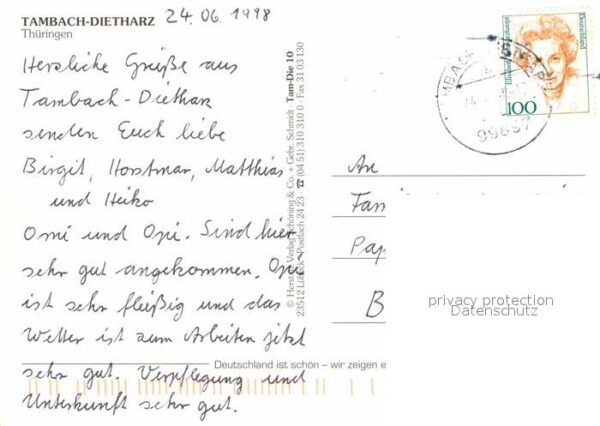 TAMBACH-DIETHARZ 24.06.1998
Thüringen
Herzliche Grüße aus
Tambach-Dietharz
senden Euch liebe
Birgit, Horstmar, Matthias
und Heiko
Omi und Opi. Sind hier
sehr gut angekommen. Opi
ist sehr fleißig und das
Wetter ist zum Arbeiten jetzt
sehr gut. Verpflegung und
Unterkunft sehr gut.
Deutschland ist schön – wir zeigen e
© Herst. u. Verlag Schöning & Co. + Gebr. Schmidt · Tam-Die 10
23512 Lübeck · Postfach 24 23 · ☎ (04 51) 310 310 0 · Fax 31 03 130
Deutschland
100
99897
An
Fam
Pap
B
privacy protection
Datenschutz